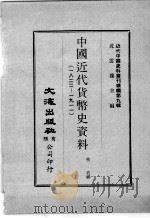 近代中國史料叢刊續編第九輯
沈雲龍主編
中國近代貨幣史資料
(一八二二—一九一一)
文海出版社有限公司印行